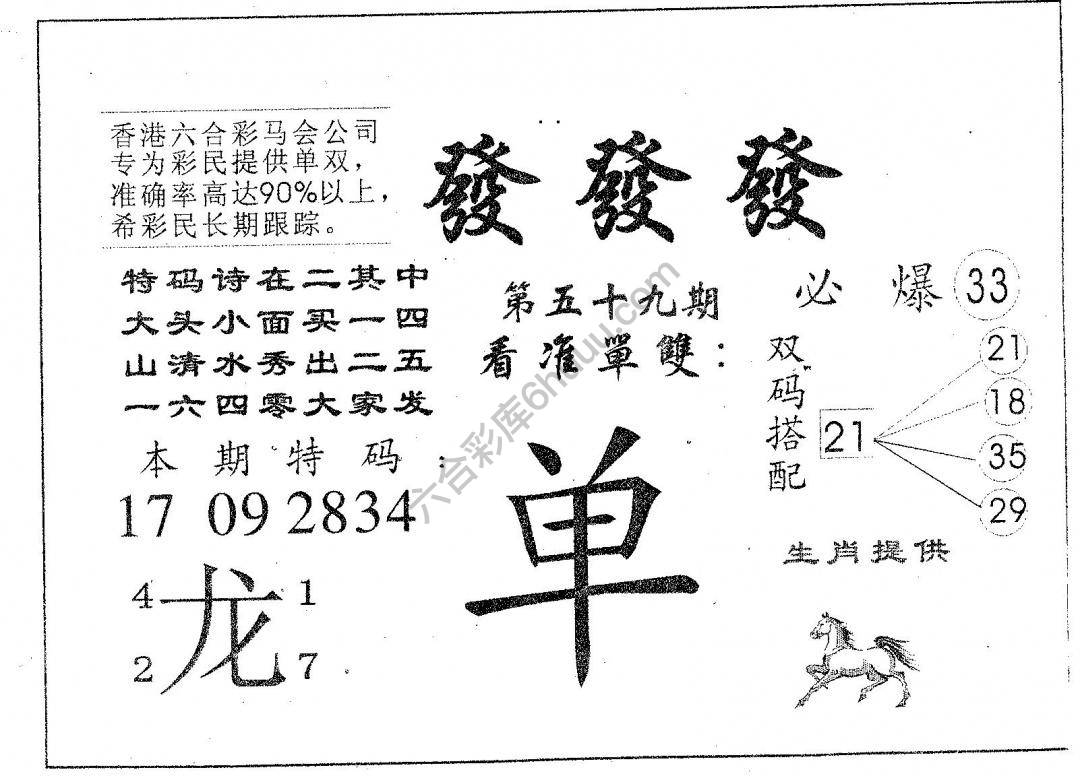 香港六合彩马会公司
专为彩民提供单双，
准确率高达90%以上，
希彩民长期跟踪。
發發發
特码诗在二其中
大头小面买一四
山清水秀出二五
一六四零大家发
第五十九期
看准單雙：
必爆 33
双码搭配
21
21
18
35
29
本期特码：
17 09 28 34
单
龙
4 1
2 7
生肖提供
六合彩库6huuu.com